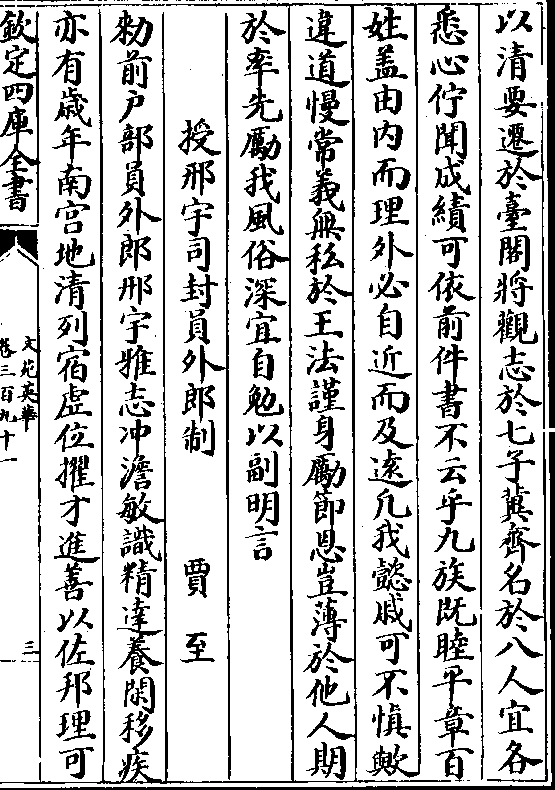 以清要遷於臺閣將觀志於七子冀齊名於八人宜各
悉心佇聞成績可依前件書不云乎九族既睦平章百
姓盖由内而理外必自近而及逺凡我懿戚可不慎歟
違道慢常義無私於王法謹身勵節恩豈薄於他人期
於率先勵我風俗深宜自勉以副明言
授邢宇司封員外郎制 賈至
勑前户部員外郎邢宇雅志冲澹敏識精達養閑移疾
亦有歳年南宫地清列宿虚位擢才進善以佐邦理可
欽定四庫全書
文苑英華
卷三百九十一
三